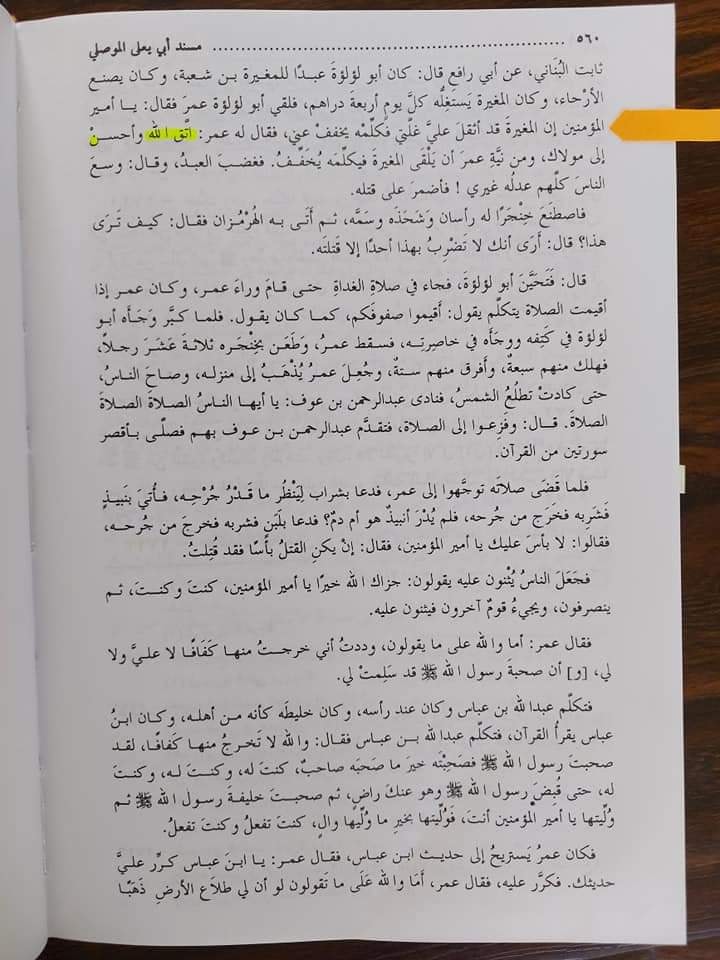 ٥٦٠ ........................................ مسند أبي يعلى الموصلي
ثابت البُنَاني، عن أبي رافعٍ قال: كان أبو لؤلؤةَ عبدًا للمغيرة بن شعبة، وكان يصنع
الأرْحاء، وكان المغيرة يَستغِلُّه كلَّ يومٍ أربعةَ دراهم، فلقي أبو لؤلؤة عمرَ فقال: يـا أميـر
المؤمنين إن المغيرةَ قد أثقلَ عليَّ غَلَّتي فكلِّمْه يخففْ عني، فقال له عمر: اتَّقِ الله وأحسـنْ
إلى مولاك، ومن نيَّةِ عمرَ أن يَلْقَى المغيرةَ فيكلِّمَه يُخَفِّـفُ. فغضـبَ العبـدُ، وقـال: وسـعَ
الناسَ كلَّهم عدلُه غيري ! فأضمرَ على قتله.
فاصطَنَعَ خِنْجَرًا له رأسان وَشَحَذَه وسَمَّه، ثـم أَتَـى بـه الهُرْمُـزان فقـال: كيـف تَـرَى
هذا؟ قال: أَرَى أنك لا تَضْرِبُ بهذا أحدًا إلا قتلتَه.
قال: فَتَحَيَّنَ أبو لؤلؤةَ، فجاء في صلاةِ الغداةِ حتـى قـامَ وراءَ عمـر، وكـان عمـر إذا
أقيمت الصلاة يتكلَّم يقول: أقيموا صفوفَكم، كمـا كـان يقـول. فلمـا كبَّـر وَجَـأَه أبـو
لؤلؤة في كَتِفه ووجَأَه في خاصِرتِـه، فسـقط عمـرُ، وَطَعَـن بخِنْجَـره ثلاثـةَ عَشَـرَ رجـلاً،
فهلك منهم سبعةٌ، وأَفرق منهم ستةٌ، وجُعِلَ عمـرُ يُذْهَـبُ إلى منزلـه، وصـاحَ النـاسُ،
حتى كادتْ تطلُع الشمسُ، فنادى عبدالرحمن بن عوف: يا أيهـا النـاسُ الصـلاةَ الصـلاةَ
الصلاةَ. قـال: وفَزِعـوا إلى الصـلاة، فتقـدَّم عبدالرحمـن بـن عـوف بهـم فصلَّـى بأقصـر
سورتين من القرآن.
فلما قَضَى صلاتَه توجَّهوا إلى عمـر، فدعـا بشـراب لِيَنْظُـر مـا قَـدْرُ جُرْحِـه، فـأُتيَ بنَبيـذٍ
فَشَرِبه فخَرَج من جُرحه، فلم يُدْرَ أنبيذٌ هو أم دمٌ؟ فدعا بلَبَنٍ فشربه فخرجَ من جُرحــه،
فقالوا: لا بأسَ عليك يا أمير المؤمنين، فقال: إنْ يكنِ القتلُ بأسًا فقد قُتِلتُ.
فجَعَلَ الناسُ يُثْنون عليه يقولون: جزاك الله خيرًا يا أمير المؤمنين، كنتَ وكنـتَ، ثـم
ينصرفون، ويجيءُ قومٌ آخرون فيثنون عليه.
فقال عمر: أما والله على ما يقولون، وددتُ أني خرجـتُ منهـا كَفَافًـا لا علـيَّ ولا
لي، [و] أن صحبةَ رسول الله ﷺ قد سَلِمتْ لي.
فتكلَّم عبدالله بن عباس وكان عند رأسه، وكان خليطَه كأنه مـن أهلـه، وكـان ابـنُ
عباس يقرأُ القرآن، فتكلَّم عبدالله بـن عبـاس فقـال: والله لا تَخـرجُ منهـا كَفافًـا، لقـد
صحبتَ رسول الله ﷺ فصَحِبْتَه خيرَ ما صَحبَه صاحبٌ، كنتَ له، وكنـتَ لـه، وكنـتَ
له، حتى قُبِضَ رسول الله ﷺ وهو عنكَ راضٍ، ثم صحبـتَ خليفةَ رسـول الله ﷺ ثـم
وُلِّيتَها يا أمير المؤمنين أنـتَ، فَوُلِّيتها بخيرِ ما وُلِّيها والٍ، كنتَ تفعلُ وكنتَ تفعلُ.
فكان عمرُ يَستريحُ إلى حديث ابن عباس، فقال عمـر: يـا ابـنَ عبـاس كـرِّر علـيَّ
حديثك. فكرَّر عليه، فقال عمر، أمَا والله عَلَى ما تَقولون لو أن لي طلاَع الأرضِ ذَهَبًا